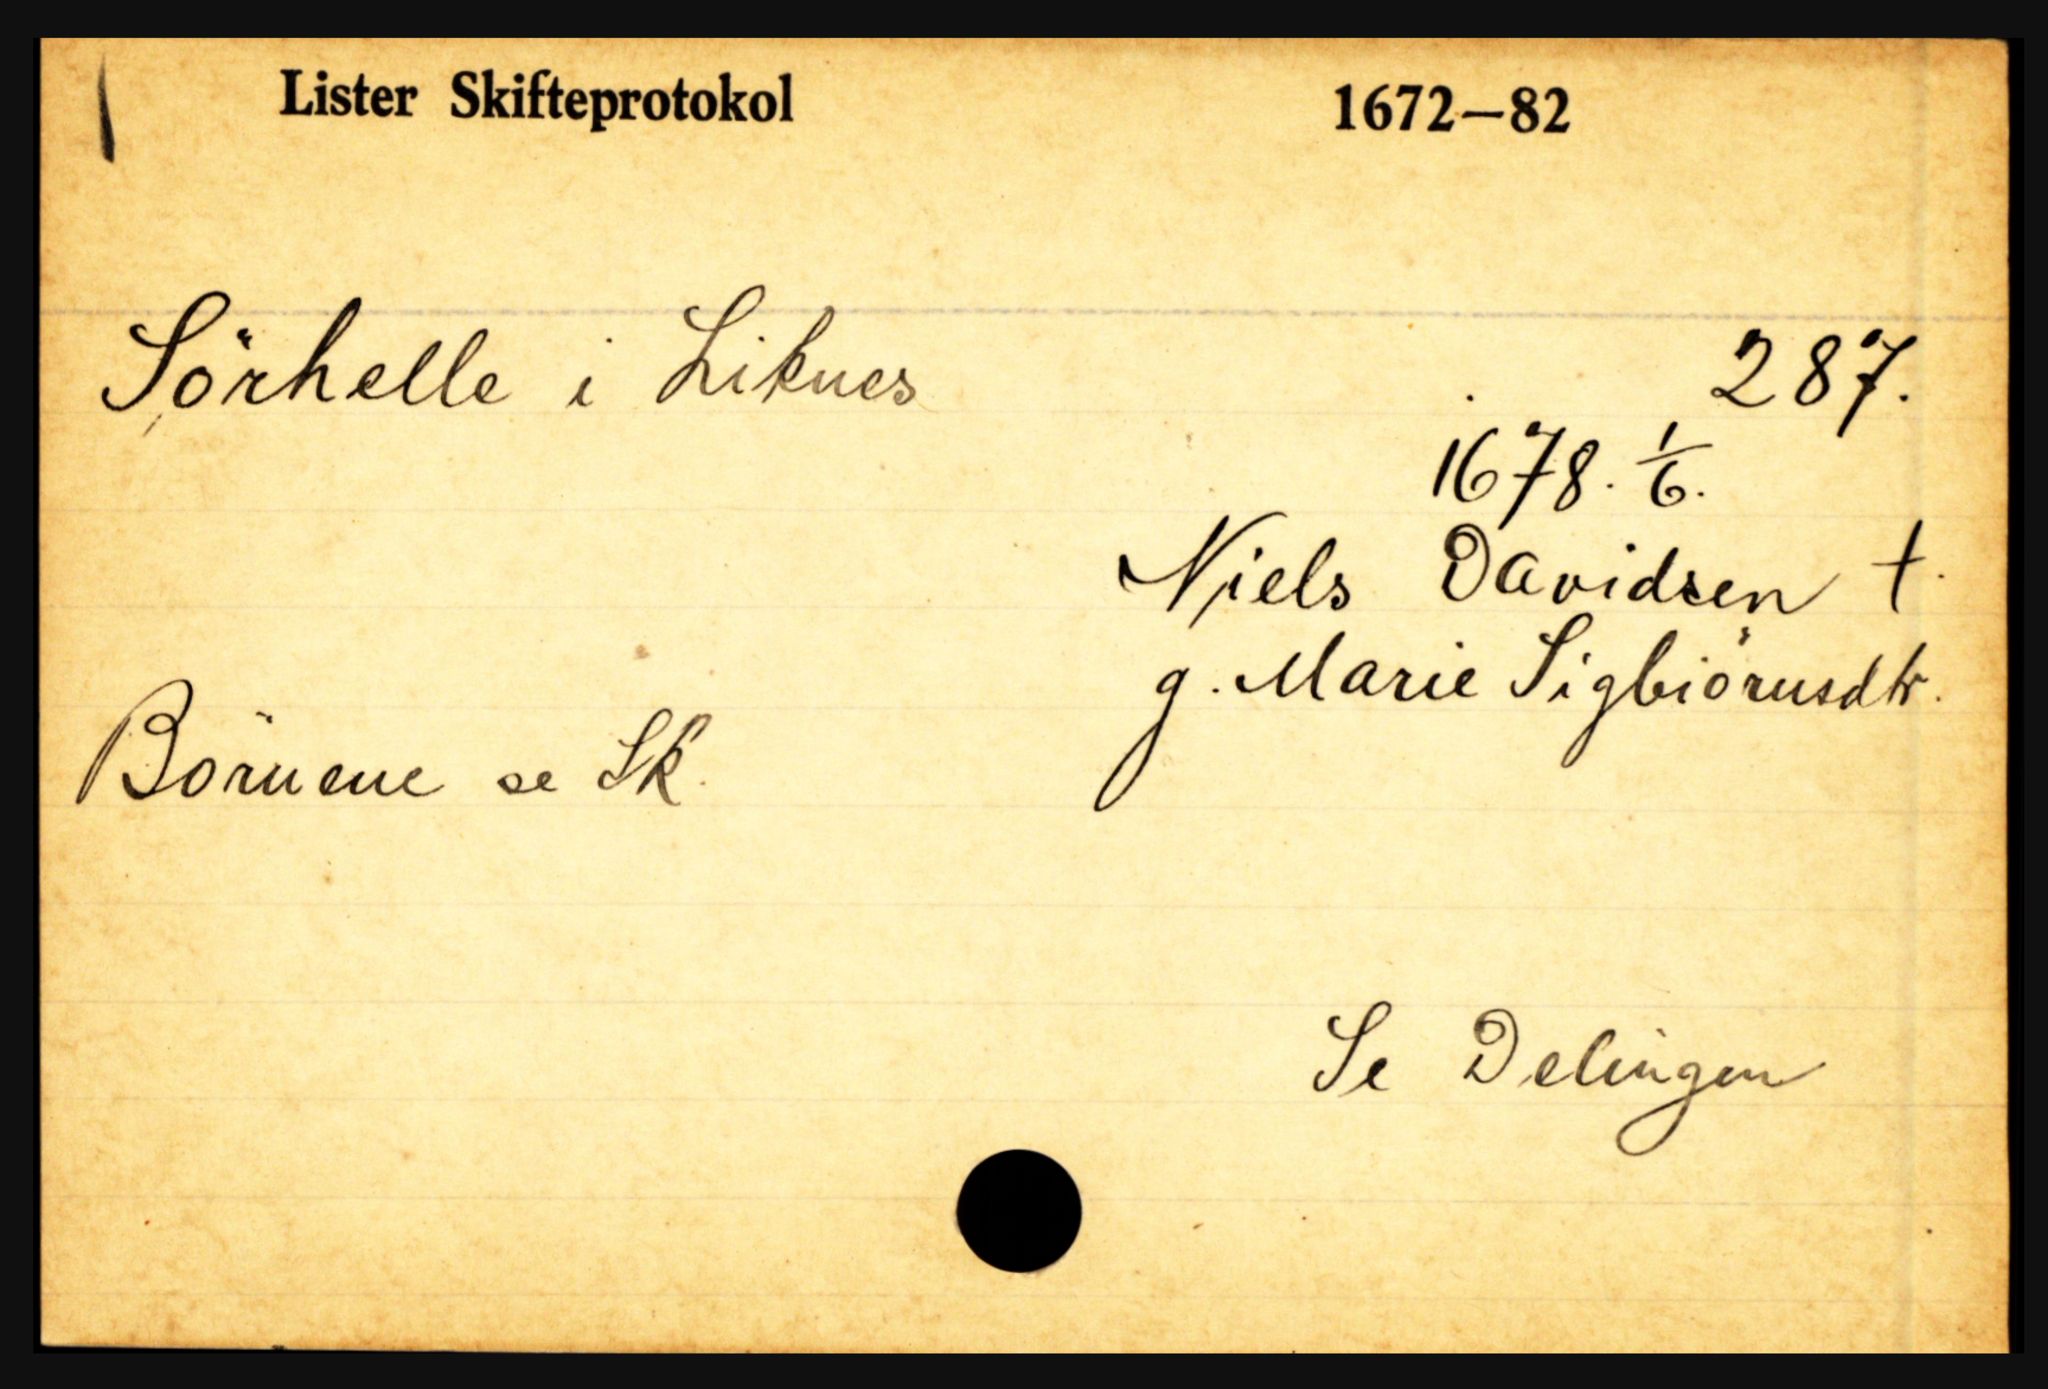 Lister Skifteprotokol 1672–82
Sörhelle i Liknes 287.
1678. 1/6.
Niels Davidsen †.
g. Marie Sigbiörnsdtr.
Börnene se Sk.
Se Delingen